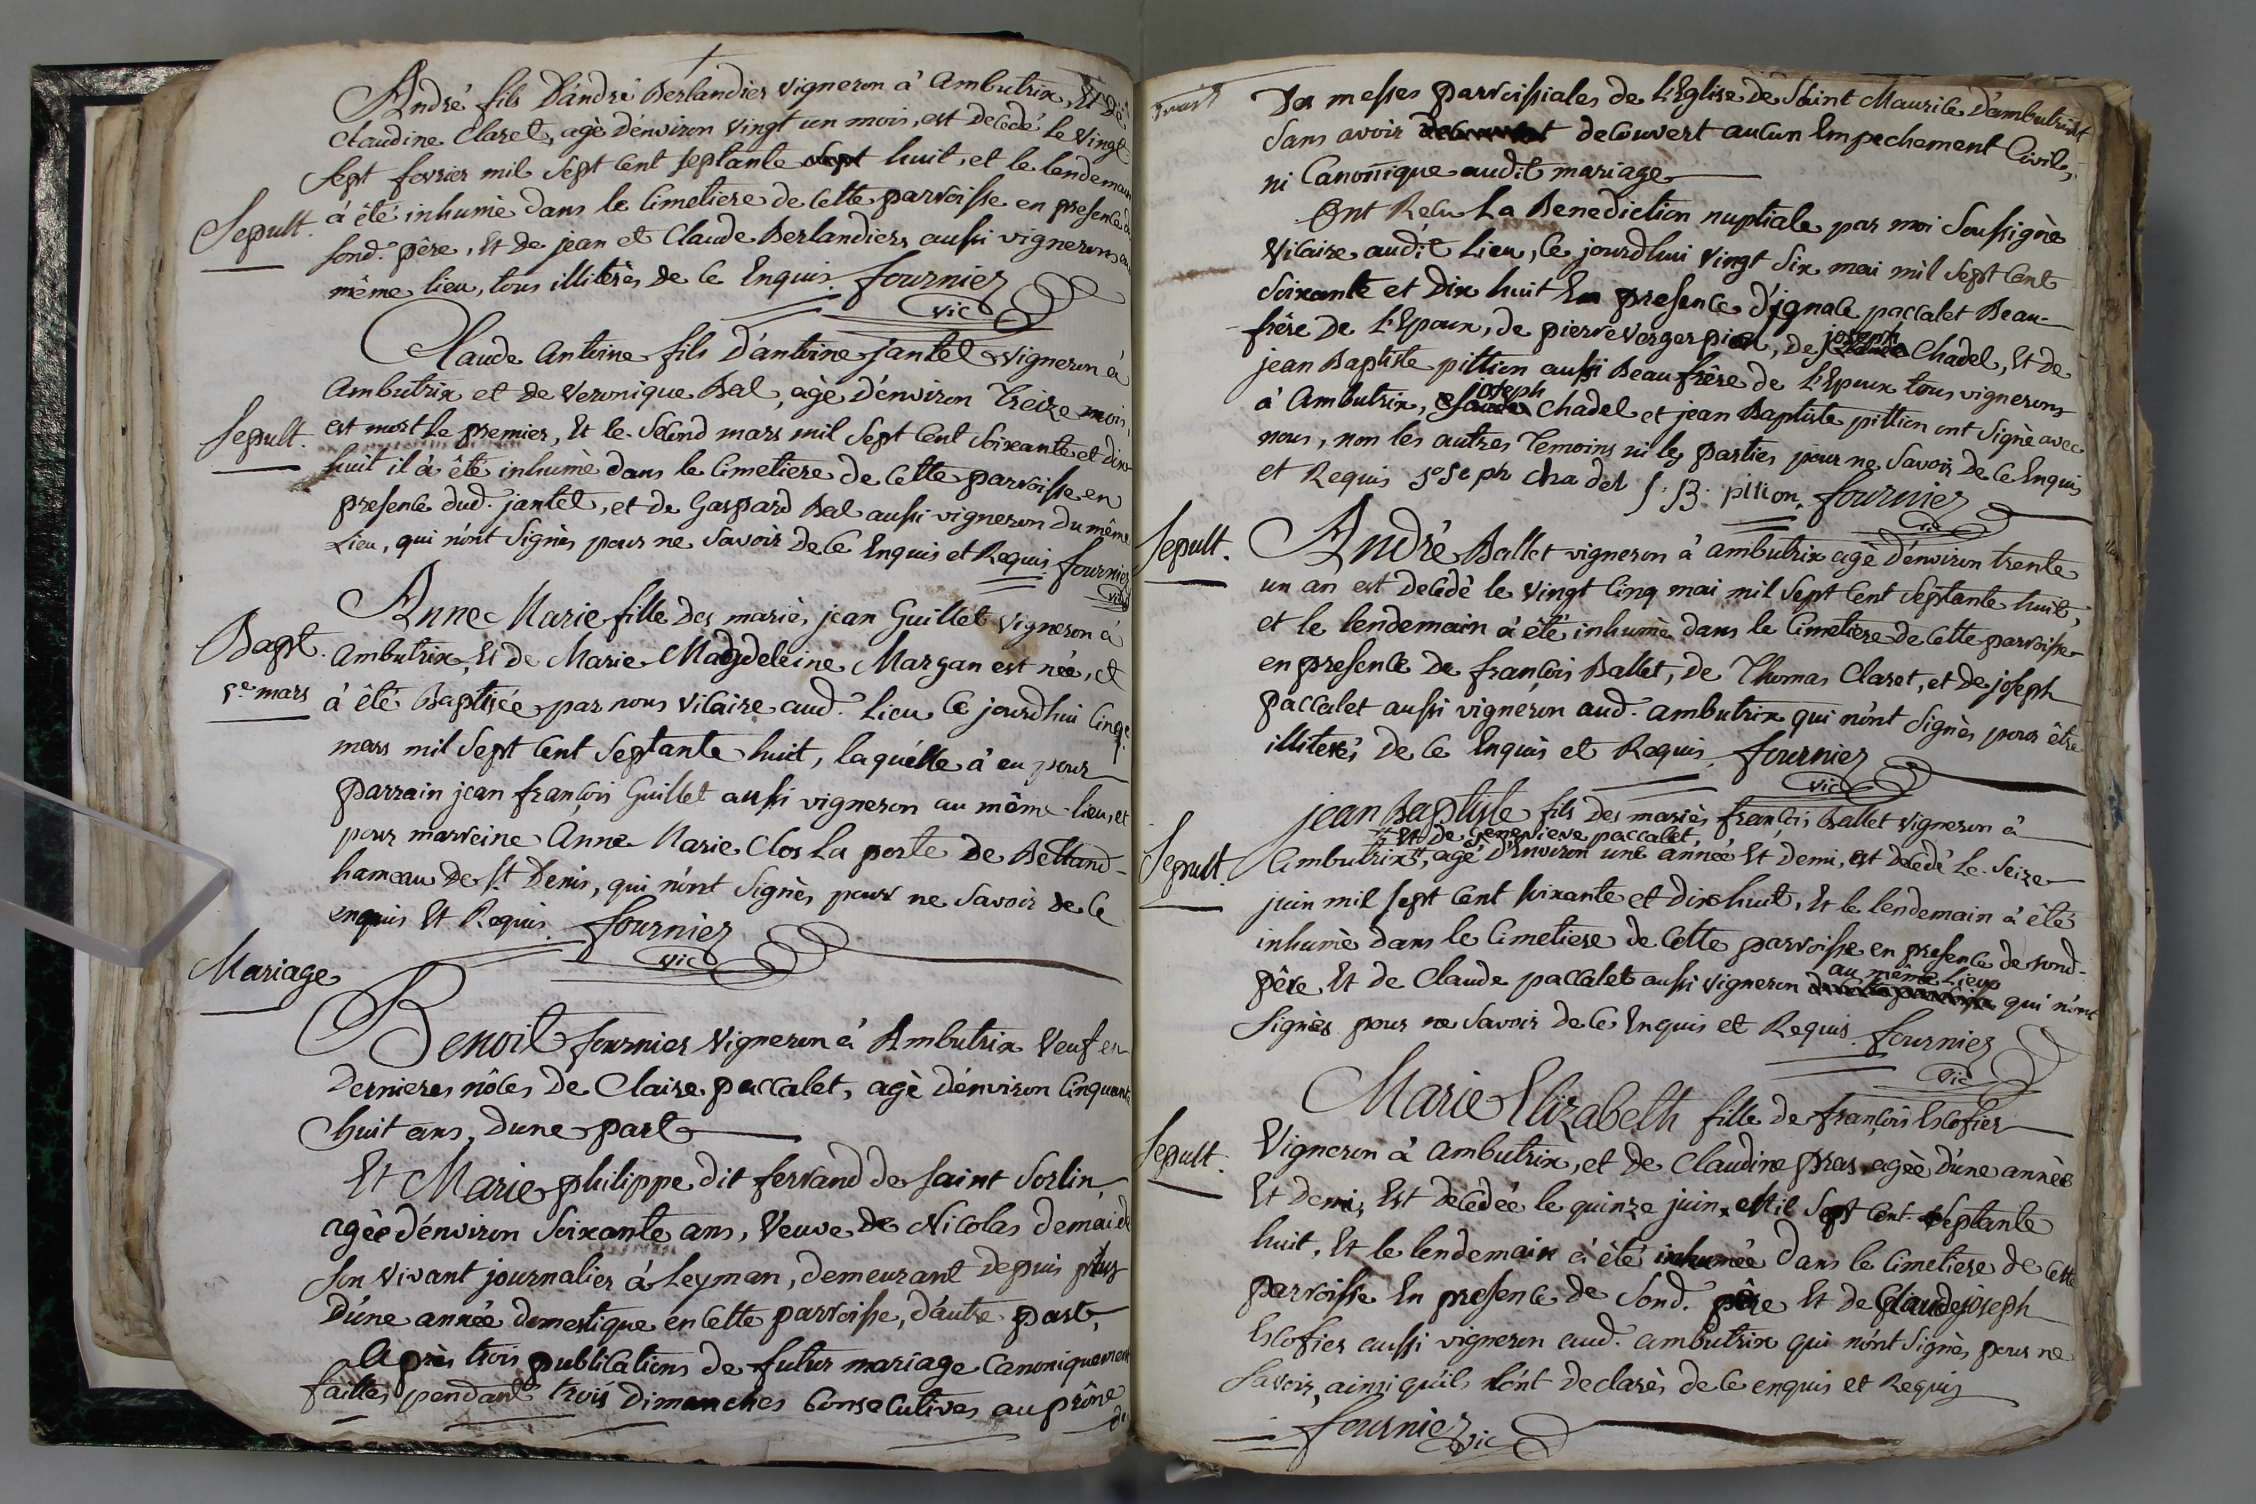 André fils D'andré Berlandier vigneron à Ambutrix, Et De
Claudine Claret, agè d'environ vingt un mois, est decedé le vingt
sept fevrier mil sept cent septante huit, et le lendemain
Sepult. à été inhumè dans le cimetiere de cette parroisse en presence de
sond. pêre, Et de jean et Claude Berlandiers aussi vignerons au
même lieu, tous illiterès de ce Enquis. fournier
vic
Claude Antoine fils D'antoine jantet vigneron à
Ambutrix et de Veronique Bal, agè d'environ Treize mois,
Sepult. est mort Le premier, Et le second mars mil sept cent soixante et dix
huit il à êté inhumè dans le cimetiere de cette parroisse en
presence dud. jantet, et de Gaspard Bal aussi vigneron du même
Lieu, qui n'ont signès pour ne savoir de ce Enquis et Requis. fournier
vic
Anne Marie fille des mariès jean Guillet vigneron à
Bapt. Ambutrix, Et de Marie Magdeleine Margan est née, et
5e mars à êté Baptisée par nous vicaire aud. Lieu ce jourdhui cinq
mars mil sept cent septante huit, laquelle à eu pour
parrain jean françois Guillet aussi vigneron au même lieu, et
pour marreine Anne Marie Clos La porte de Bettand-
hameau de St. Denis, qui n'ont signès, pour ne savoir de ce
enquis Et Requis. fournier
vic
Mariage
Benoit fournier vigneron à Ambutrix Veuf en
dernieres nôces de Claire paccalet, agè d'environ cinquante
huit ans, d'une part
Et Marie philippe dit ferrand de saint Sorlin,
agèe d'environ soixante ans, Veuve de Nicolas demai de
son vivant journalier à Leyman, demeurant depuis plus
D'une année domestique en cette parroisse, d'autre part,
Après trois publications de futur mariage canoniquement
faittes pendant trois Dimanches consecutives au prône
de
Des messes parroissiales de L'Eglise de saint Maurice d'ambutrix
sans avoir decouvert aucun Empechement Civil,
ni Canonique audit mariage
Ont Recu La Benediction nuptiale par moi soussignè
vicaire audit Lieu, ce jourdhui vingt six mai mil sept cent
soixante et dix huit En presence d'ignace paccalet Beau-
frère de L'Epoux, de pierre verger pion, de joseph Chadel, Et de
jean Baptiste pittion aussi Beaufrêre de L'Epoux tous vignerons
à Ambutrix, joseph Chadel et jean Baptiste pittion ont signè avec
nous, non les autres Temoins ni les parties pour ne savoir de ce Enquis
et Requis joseph chadel J: B: pition. fournier
vic
Sepult. André Ballet vigneron à ambutrix agè d'environ trente
un an est decedè le vingt cinq mai mil sept cent septante huit,
et le lendemain à êtè inhumè dans le cimetiere de cette parroisse
en presence de françois Ballet, de Thomas Claret, et de joseph
paccalet aussi vigneron aud. ambutrix qui n'ont signès pour être
illiterés de ce Enquis et Requis. fournier
vic
jean Baptiste fils des mariès françois Ballet vigneron à
Et de Genevieve paccalet,
Sepult. Ambutrix, agè d'Environ une année Et demi, est decedè le seize
juin mil sept cent soixante et dix huit, Et le lendemain à êtè
inhumè dans le cimetiere de cette parroisse en presence de sond.
au même Lieu
père Et de Claude paccalet aussi vigneron qui n'ont
signès pour ne savoir de ce Enquis et Requis. fournier
vic
Marie Elizabeth fille de françois Escofier
Sepult. Vigneron à ambutrix, et de Claudine pras, agèe d'une annèe
Et demi, Est decedèe le quinze juin Mil sept cent septante
huit, Et le lendemain à été inhumée dans le cimetiere de cette
parroisse En presence de sond. père Et de Claude joseph
Escofier aussi vigneron aud. ambutrix qui n'ont signès pour ne
savoir, ainsi qu'ils l'ont declarès de ce enquis et Requis
fournier vic